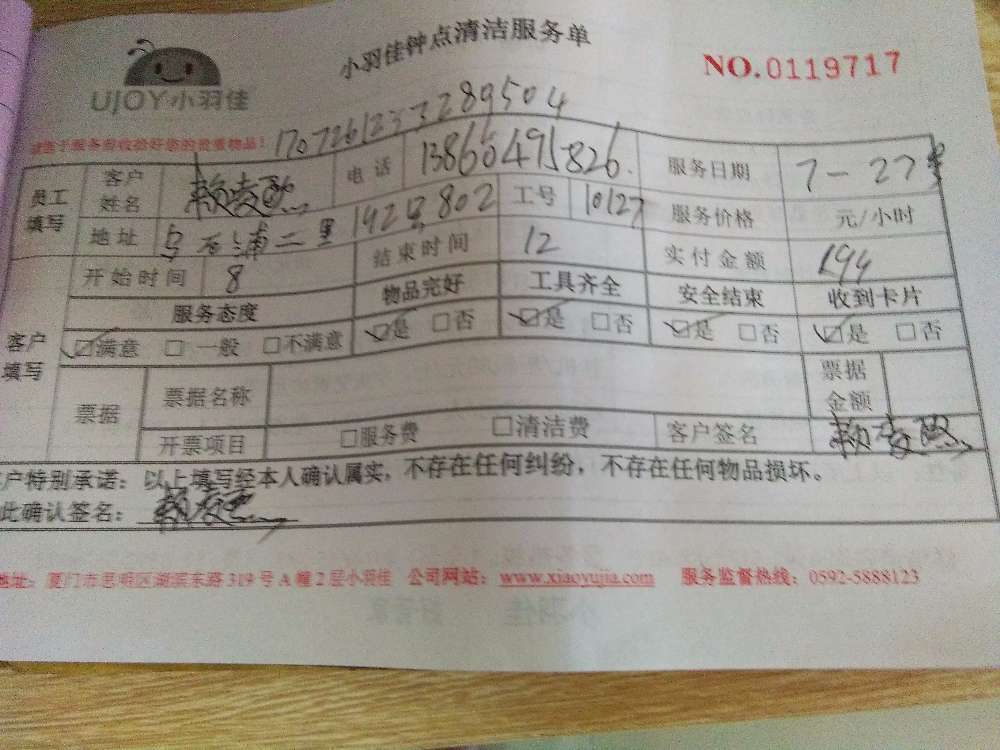 小羽佳钟点清洁服务单
NO.0119717
UJOY小羽佳
服务前收拾好您的贵重物品! 1707261233289504
员工填写 客户姓名 赖 电话 13860495826 服务日期 7-27
地址 乌石浦二里142号802 工号 10127 服务价格 元/小时
客户填写 开始时间 8 结束时间 12 实付金额 194
服务态度 物品完好 工具齐全 安全结束 收到卡片
☑满意 □一般 □不满意 ☑是 □否 ☑是 □否 ☑是 □否 ☑是 □否
票据 票据名称 票据金额
开票项目 □服务费 □清洁费 客户签名 赖
户特别承诺：以上填写经本人确认属实，不存在任何纠纷，不存在任何物品损坏。
此确认签名： 赖
地址：厦门市思明区湖滨东路319号A幢2层小羽佳 公司网站：www.xiaoyujia.com 服务监督热线：0592-5888123